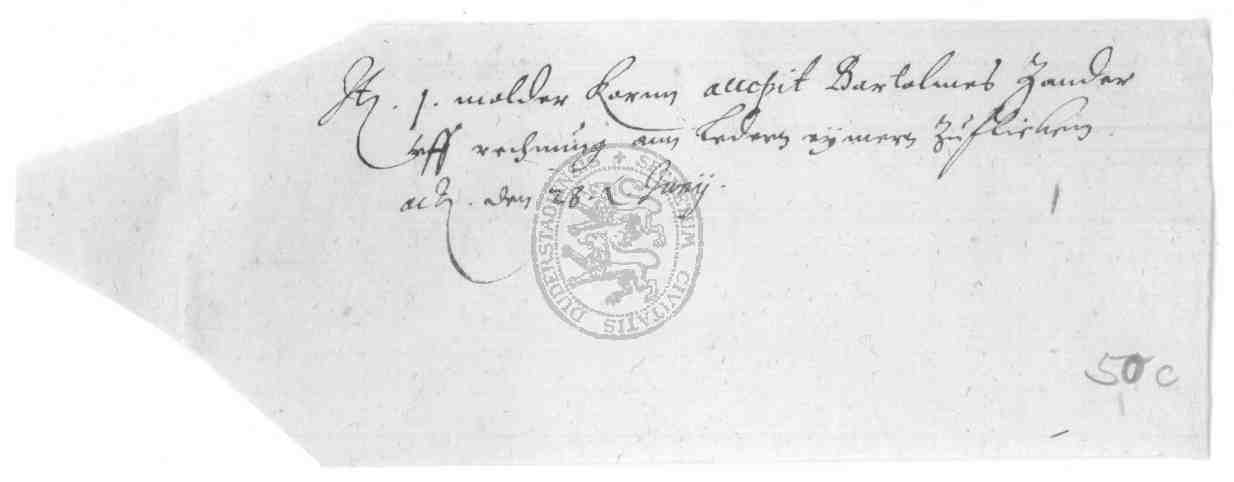 Itē . 1 . malder Kornn accepit Bartolmes Zander
vff rechnung ann ledern eymern Zuflicken .
actū . den 28 . Junij .
SECRETUM CIVITATIS DUDERSTADENSIS
50 c